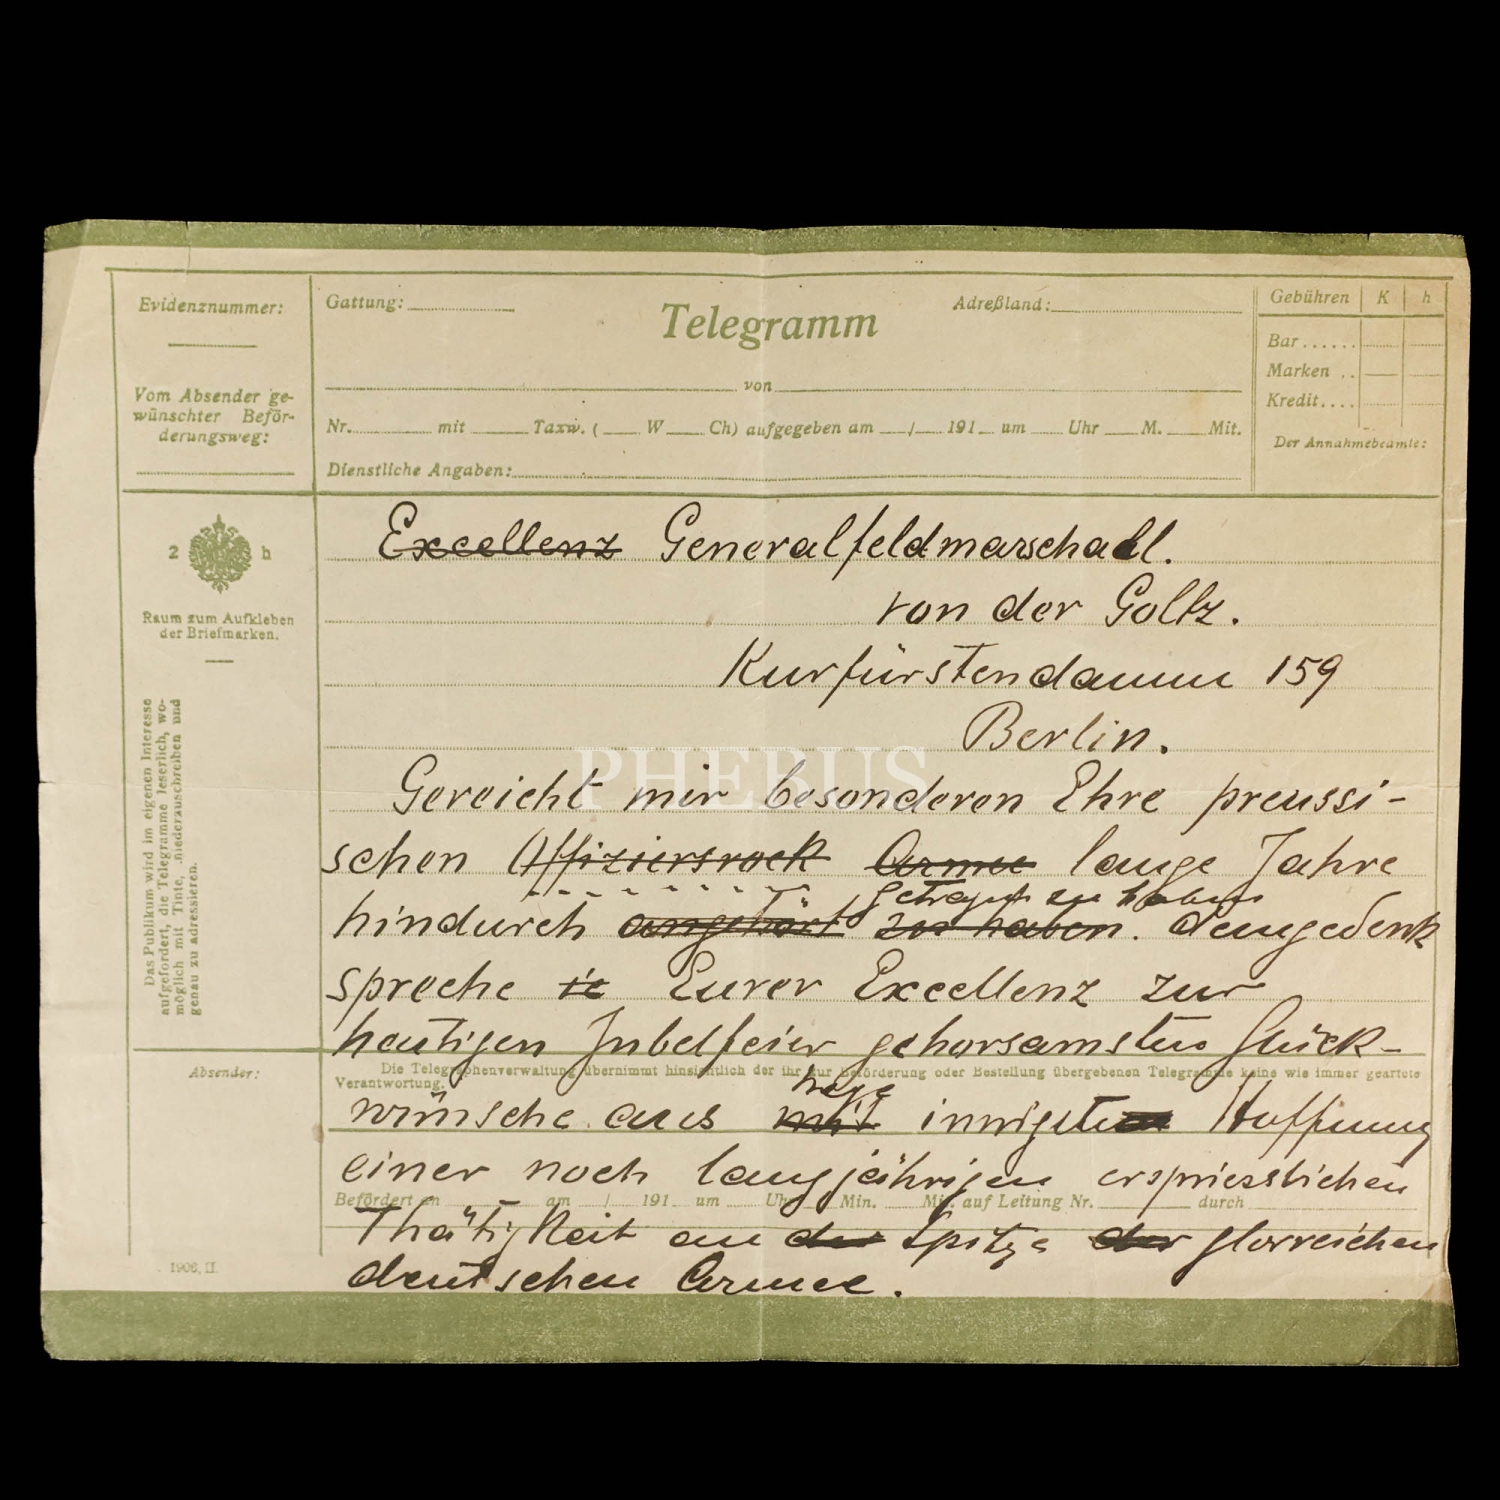 Evidenznummer:
Vom Absender ge-
wünschter Beför-
derungsweg:
Gattung:
Telegramm
Adreßland:
von
Nr. mit Taxw. ( W Ch) aufgegeben am / 191 um Uhr M. Mit.
Dienstliche Angaben:
Gebühren K h
Bar......
Marken ..
Kredit....
Der Annahmebeamte:
2 h
Raum zum Aufkleben
der Briefmarken.
Das Publikum wird im eigenen Interesse
aufgefordert, die Telegramme leserlich, wo-
möglich mit Tinte, niederzuschreiben und
genau zu adressieren.
Excellenz Generalfeldmarschall.
von der Goltz.
Kurfürstendamm 159
Berlin.
Gereicht mir besonderen Ehre preussi-
schen Offiziersrock Armee lange Jahre
getragen zu haben
hindurch angehört zu haben. demgedenk
spreche ic Eurer Excellenz zur
heutigen Jubelfeier gehorsamsten Glück-
Absender:
Die Telegraphenverwaltung übernimmt hinsichtlich der ihr zur Beförderung oder Bestellung übergebenen Telegramme keine wie immer geartete
Verantwortung.
hege
wünsche aus mit innigsten Hoffnung
einer noch langjährigen erspriesslichen
Befördert an am / 191 um Uhr Min. Mit. auf Leitung Nr. durch
Thätigkeit an der Spitze der glorreichen
deutschen Armee.
1906, II.
PHEBUS